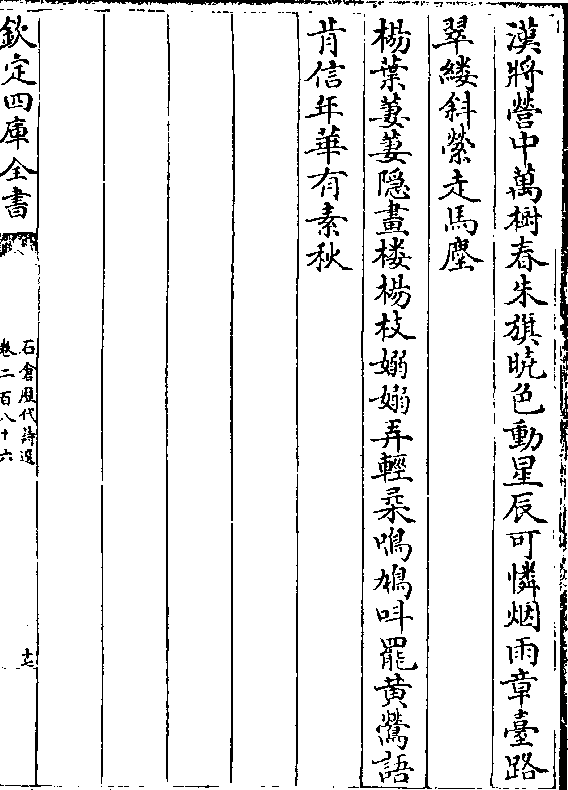 漢將營中萬樹春朱旗曉色動星辰可憐烟雨章臺路
翠縷斜縈走馬塵
楊葉萋萋隱畫樓楊枝嫋嫋弄輕柔鳴鳩呌罷黄鶯語
肯信年華有素秋
欽定四庫全書
石倉歴代詩選
卷二百八十六
十六